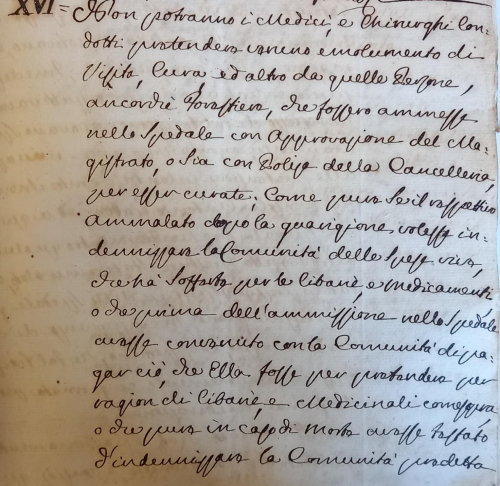 XVI = Non potranno i Medici, e Chirurghi Con=
dotti pretendere veruno emolumento di
Visita, Cura ed altro da quelle Persone,
ancorchè Forastiere, che fossero ammesse
nello Spedale con Approvazione del Ma=
gistrato, o sia con Polize della Cancelleria,
per esser curate; Come pure se il rispettivo
ammalato dopo la guarigione volesse in=
dennizzare la Comunità delle spese vive,
che hà sofferte per le libane, e medicamenti,
o che prima dell'ammissione nello Spedale
avesse convenuto con la Comunità di pa=
gar ciò, che Ella fosse per pretendere per
ragion di libane, e Medicinali come sopra,
o che pure in caso di morte avesse testato
d'indennizzare la Comunità predetta